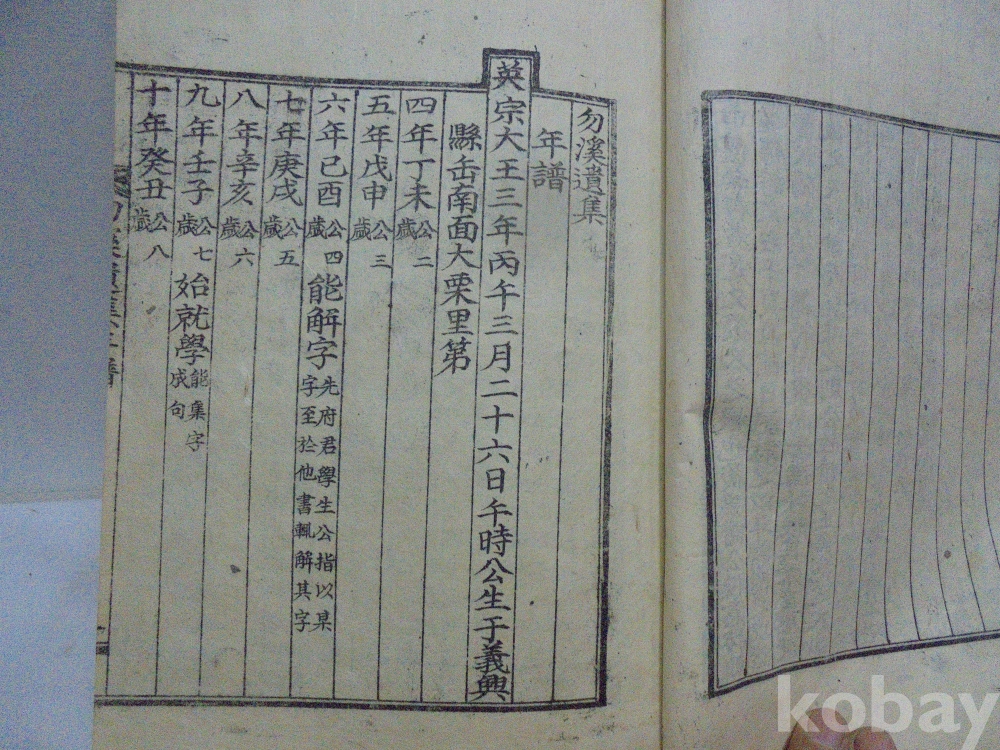 勿溪遺集
年譜
英宗大王三年丙午三月二十六日午時公生于義興
縣岳南面大栗里第
四年丁未公二歲
五年戊申公三歲
六年己酉公四歲能解字先府君學生公指以某字至於他書輒解其字
七年庚戌公五歲
八年辛亥公六歲
九年壬子公七歲始就學能集字成句
十年癸丑公八歲
kobay